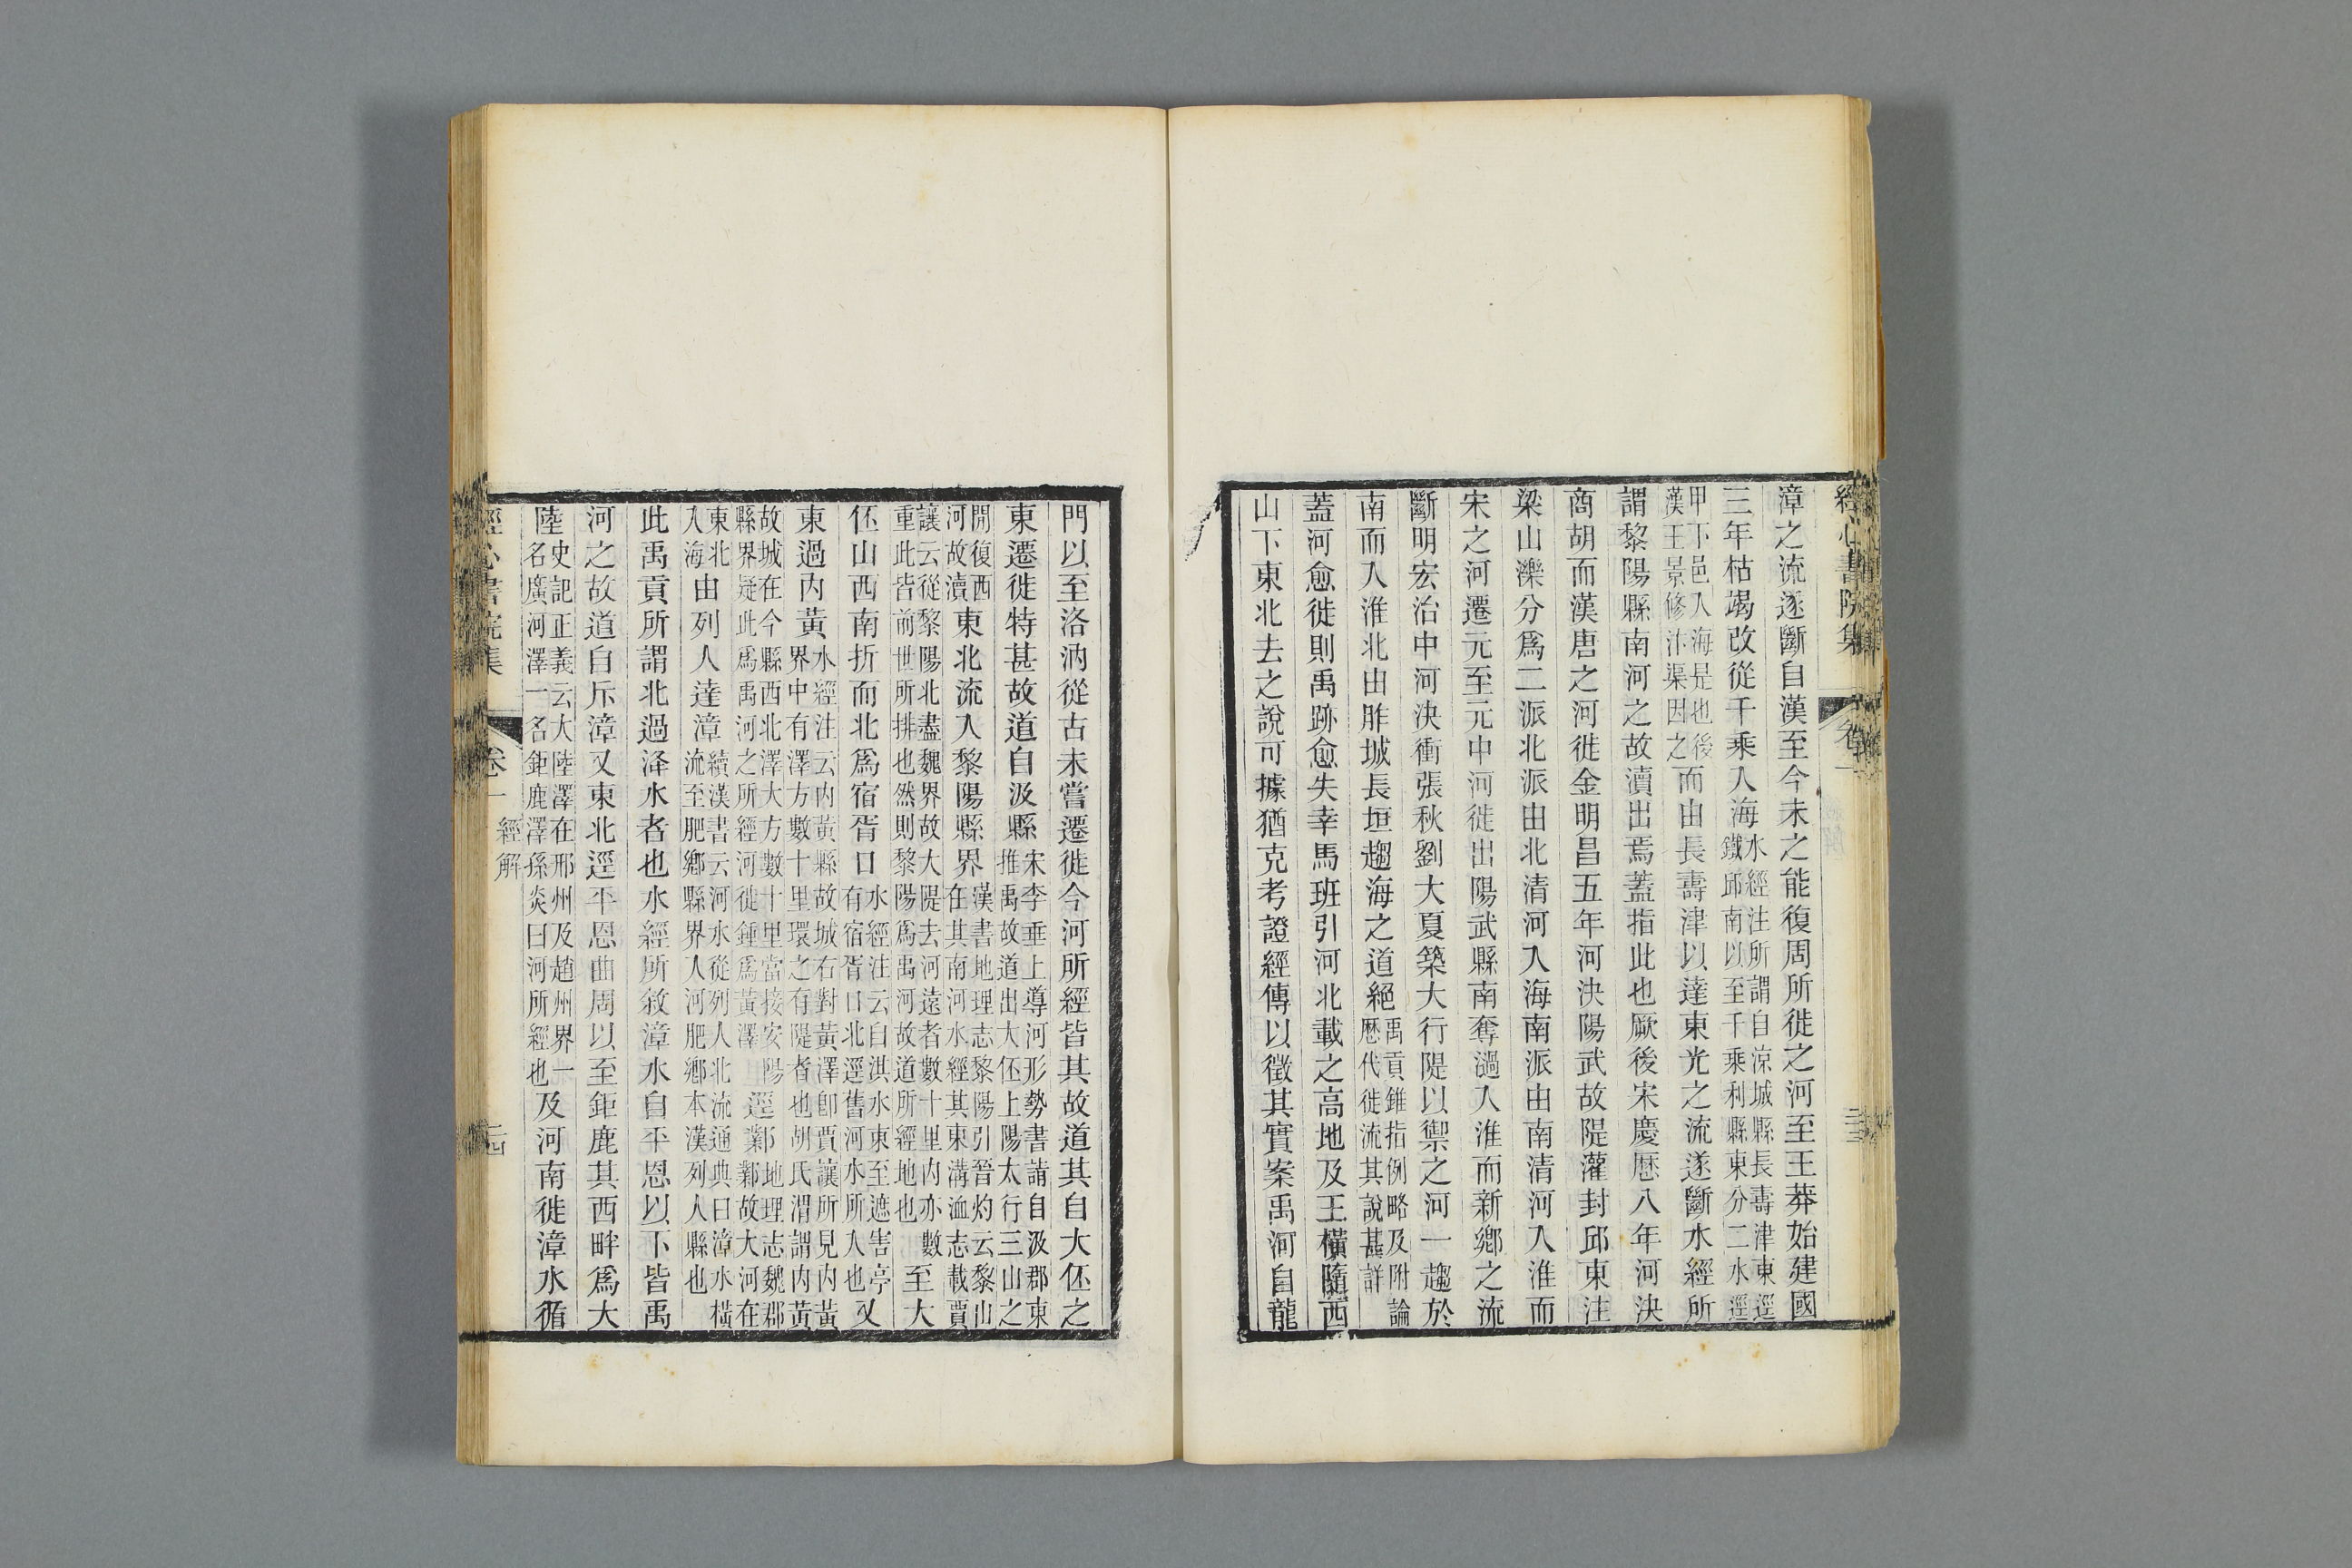 經心書院集 卷一
漳之流遂斷自漢至今未之能復周所徙之河至王莽始建國
三年枯竭改從千乘入海水經注所謂自涼城縣長壽津東逕鐵邱南以至千乘利縣東分二水逕
甲下邑入海是也後漢王景修汴渠因之而由長壽津以達東光之流遂斷水經所
謂黎陽縣南河之故瀆出焉蓋指此也厥後宋慶歷八年河決
商胡而漢唐之河徙金明昌五年河決陽武故隄灌封邱東注
梁山濼分爲二派北派由北清河入海南派由南清河入淮而
宋之河遷元至元中河徙出陽武縣南奪濄入淮而新鄉之流
斷明宏治中河決衝張秋劉大夏築大行隄以禦之河一趨於
南而入淮北由胙城長垣趨海之道絕禹貢錐指例略及附論歷代徙流其說甚詳
蓋河愈徙則禹跡愈失幸馬班引河北載之高地及王橫隨西
山下東北去之說可據猶克考證經傳以徵其實案禹河自龍
門以至洛汭從古未嘗遷徙今河所經皆其故道其自大伾之
東遷徙特甚故道自汲縣宋李垂上導河形勢書請自汲郡東推禹故道出大伾上陽太行三山之
閒復西河故瀆東北流入黎陽縣界漢書地理志黎陽引晉灼云黎山在其南河水經其東溝洫志載賈
讓云從黎陽北盡魏界故大隄去河遠者數十里內亦數重此皆前世所排也然則黎陽爲禹河故道所經地也至大
伾山西南折而北爲宿胥口水經注云自淇水東至遮害亭有宿胥口北逕舊河水所入也又
東過內黃水經注云內黃縣故城右對黃澤卽賈讓所見內黃界中有澤方數十里環之有隄者也胡氏渭謂內黃
故城在今縣西北澤大方數十里當接安陽縣界疑此爲禹河之所經河徙鍾爲黃澤逕鄴地理志魏郡鄴故大河在
東北入海由列人達漳續漢書云河水從列人北流通典曰漳水橫流至肥鄉縣界入河肥鄉本漢列人縣也
此禹貢所謂北過洚水者也水經所敘漳水自平恩以下皆禹
河之故道自斥漳又東北逕平恩曲周以至鉅鹿其西畔爲大
陸史記正義云大陸澤在邢州及趙州界一名廣河澤一名鉅鹿澤孫炎曰河所經也及河南徙漳水循
經心書院集 卷一 經解